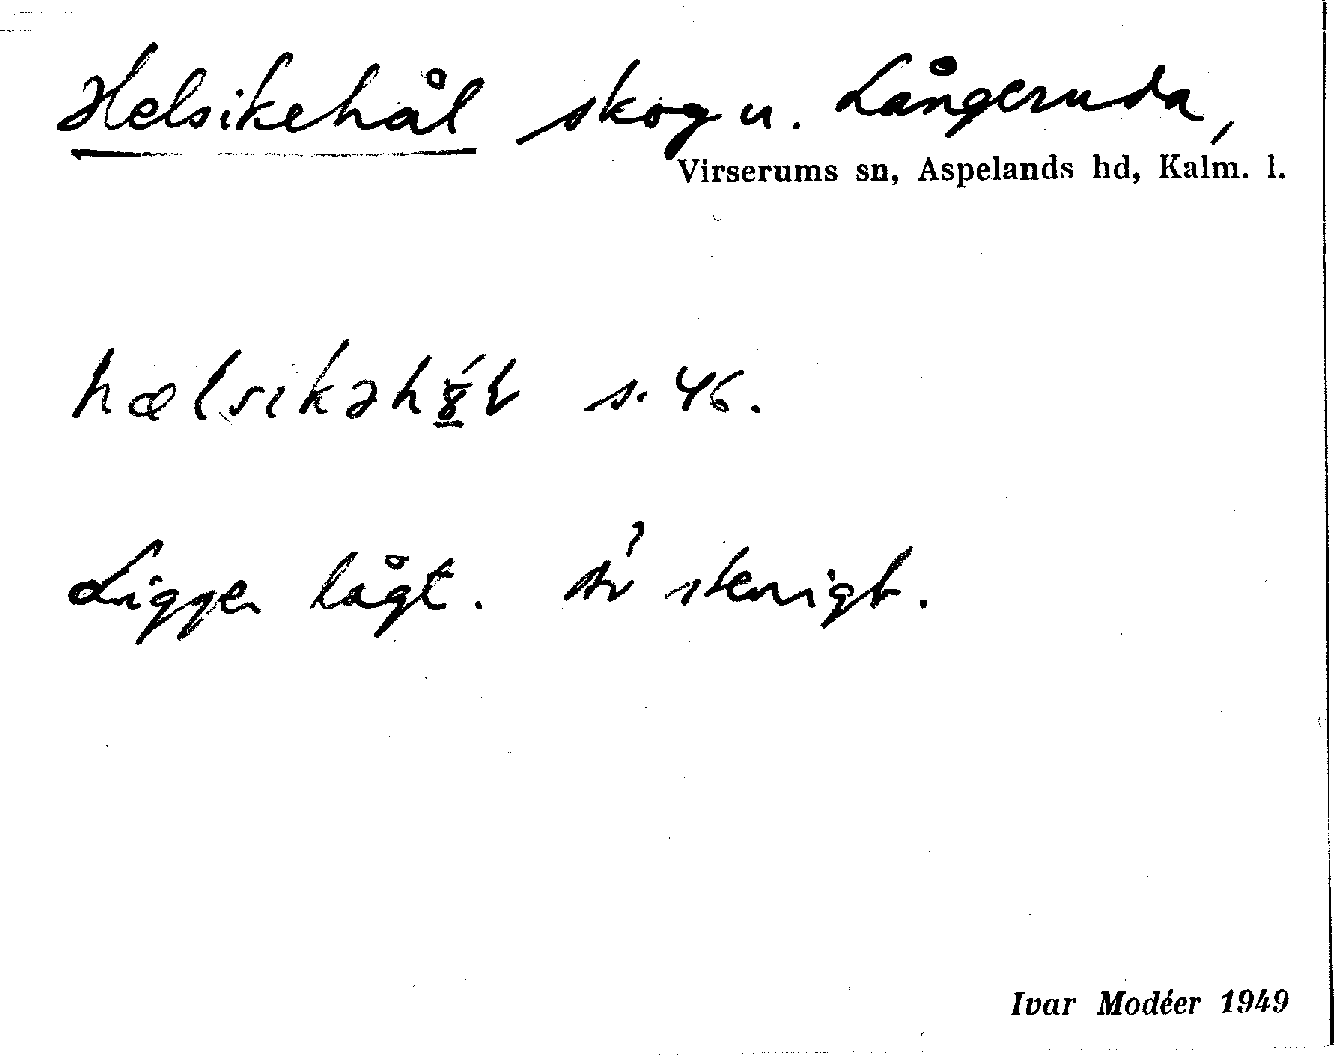 Helsikehål skog u. Långeruda,
Virserums sn, Aspelands hd, Kalm. l.
hælsıkəh s. 46.
Ligger lågt. stenigt.
Ivar Modéer 1949